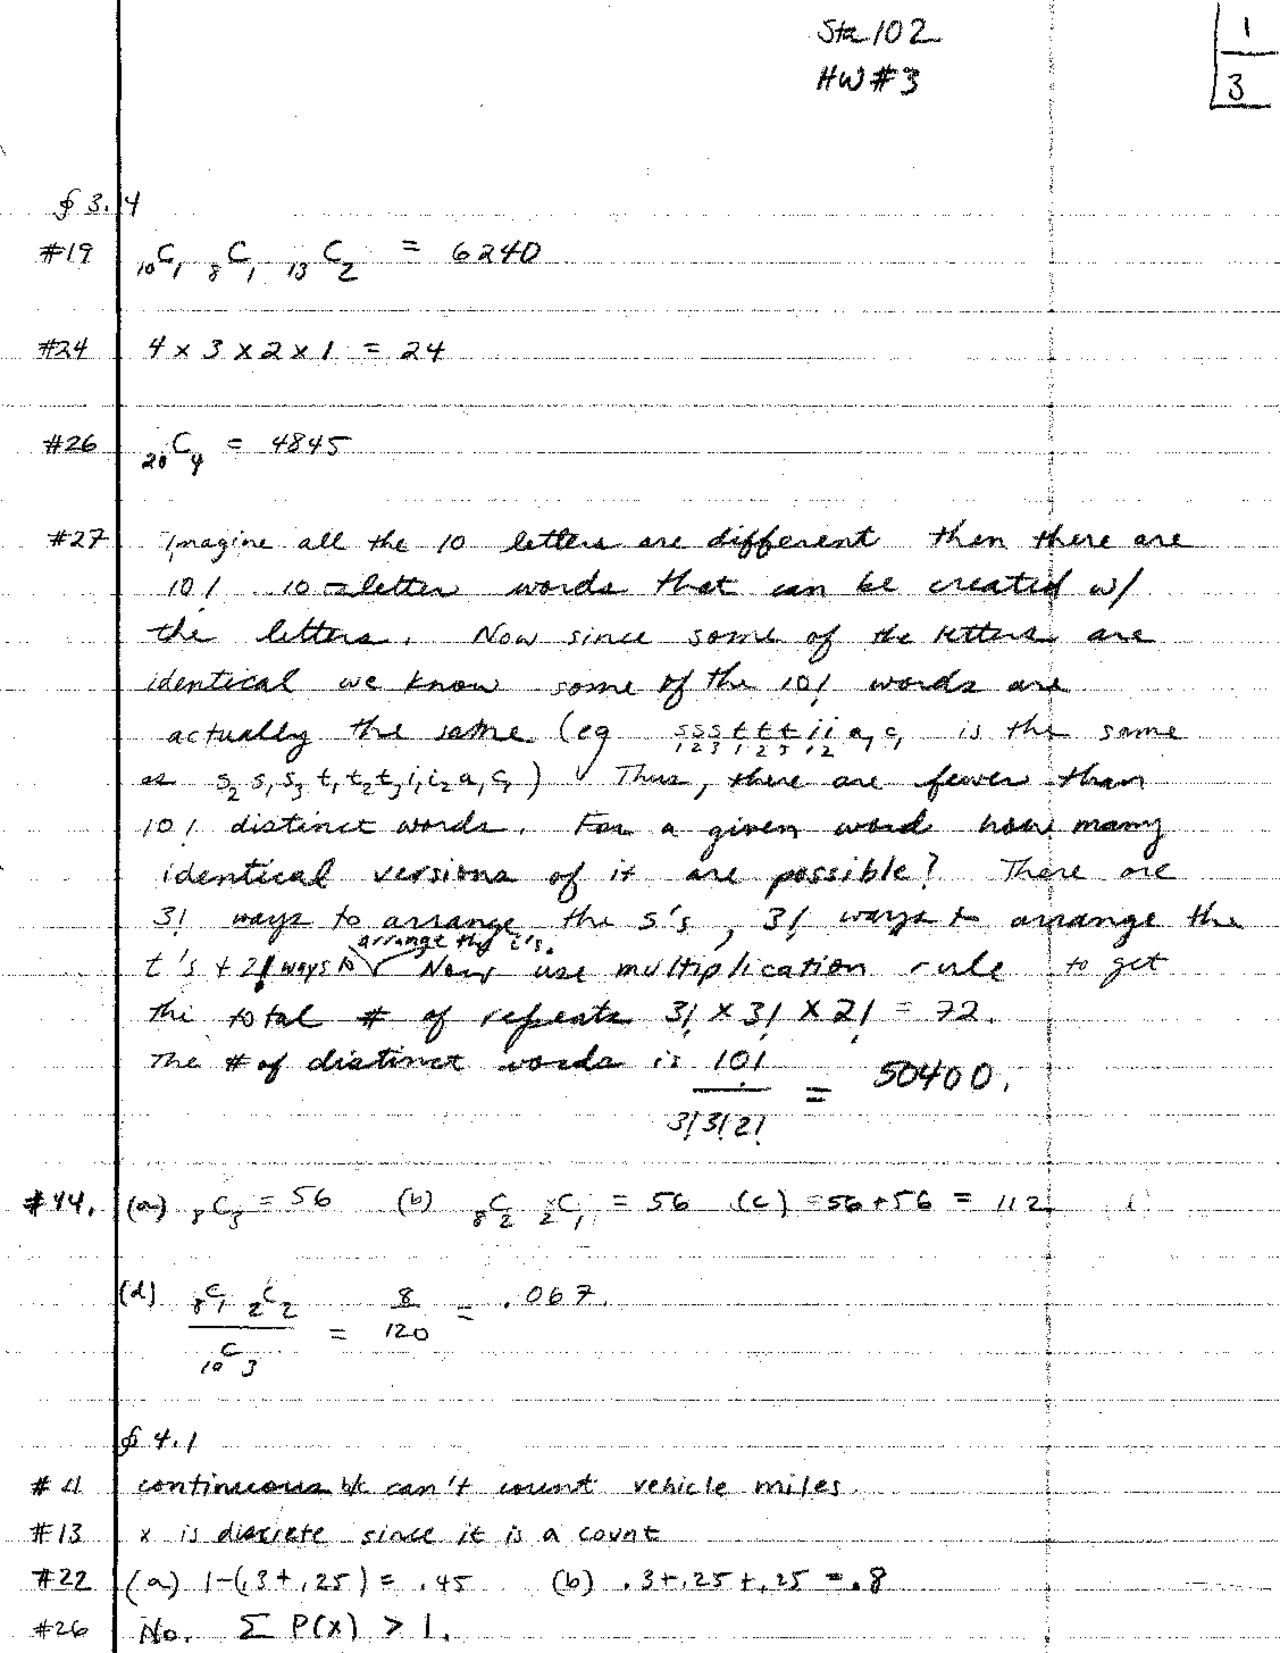 Sta 102
HW#3
1
3
§ 3.4
#19 10C1 8C1 13C2 = 6240
#24 4 x 3 x 2 x 1 = 24
#26 20C4 = 4845
#27 Imagine all the 10 letters are different then there are
10! 10-letter words that can be created w/
the letters. Now since some of the letters are
identical we know some of the 10! words are
actually the same (eg s1s2s3t1t2t3i1i2a1c1 is the same
as s2s1s3t1t2t3i1i2a1c1) Thus, there are fewer than
10! distinct words. For a given word how many
identical versions of it are possible? There are
3! ways to arrange the s's, 3! ways to arrange the
t's + 2! ways to arrange the i's. Now use multiplication rule to get
the total # of repeats 3! x 3! x 2! = 72.
The # of distinct words is 10! / 3!3!2! = 50400.
#44. (a) 8C3 = 56 (b) 8C2 2C1 = 56 (c) = 56+56 = 112
(d) 8C1 2C2 / 10C3 = 8/120 = .067.
§ 4.1
#11 continuous b/c can't count vehicle miles.
#13 x is discrete since it is a count
#22 (a) 1-(.3+.25) = .45 (b) .3+.25+.25 = .8
#26 No. Σ P(x) > 1.